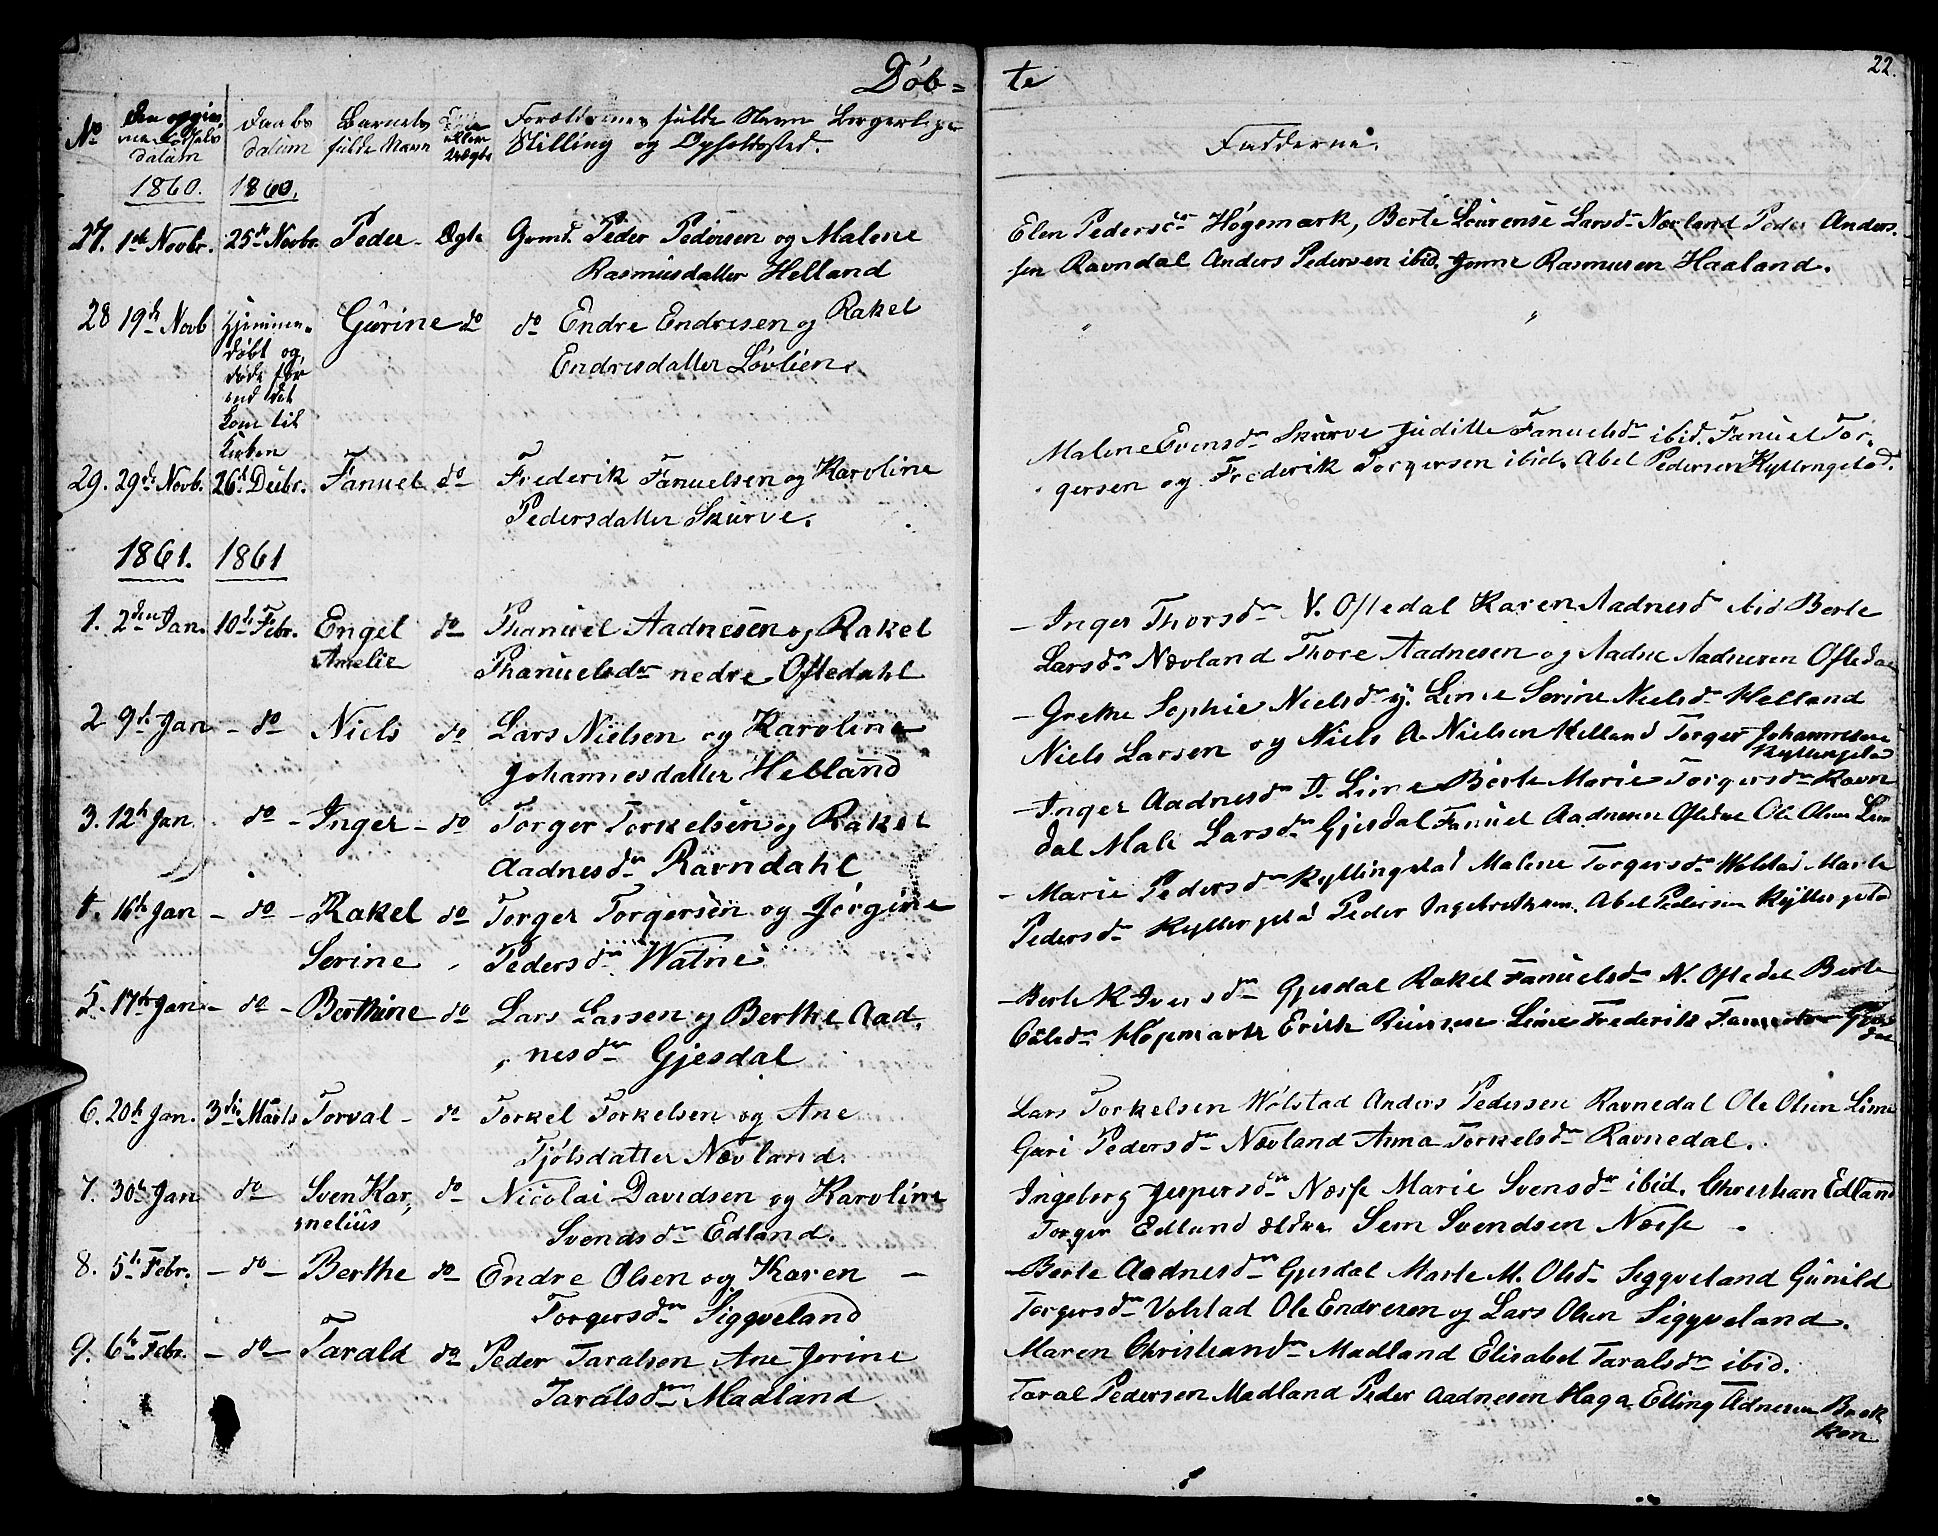 Døb=
te
22.
No
Den opgivne Fødselsdatum
Daabs datum
Barnets fulde Navn
ellers Uægte
Forældrenes fulde Navn Borgerlige
Stilling og Opholdssted.
Fadderne.
1860. 1860.
27. 1ste Novbr. 25de Novbr. Peder - Ægte Grmd. Peder Pedersen og Malene
Rasmusdatter Helland
Elen Pedersdr Høgemark, Berte Laurense Larsdr Nævland Peder Anders
sen Ravndal Anders Pedersen ibid. Jonne Rasmusen Haaland.
28 19de Novb Hjemmedøbt og døde før end det kom til Kirken Gurine do do Endre Endresen og Rakel
Endresdatter Løvlien.
29. 29de Novb. 26de Decbr. Fanuel do Frederik Fanuelsen og Karoline
Pedersdatter Skurve.
Malene Evensdr Skurve Juditte Fanuelsdr ibid. Fanuel Tor-
gersen og Frederik Torgersen ibid. Abel Pedersen Kyllingstad.
1861. 1861
1. 2den Jan. 10de Febr. Engel do Phanuel Aadnesen og Rakel
Amelie Phanuelsdr nedre Oftedahl
- Inger Thorsdr N. Oftedal Karen Aadnesdr ibid Berte
Larsdr Nævland Thore Aadnesen og Aadne Aadnesen Oftedal
2 9de Jan - do Niels do Lars Nielsen og Karoline
Johannesdatter Helland
- Grethe Sophie Nielsdr y. Lime Serine Nielsdr Helland
Niels Larsen og Niels A. Nielsen Helland Torger Johannesen
Kyllingstad
3. 12te Jan. do - Inger - do Torger Torkelsen og Rakel
Aadnesdr Ravndahl
- Inger Aadnesdr Lime Berte Marie Torgersdr Ravn
dal Male Larsdr Gjesdal Fanuel Aadnesen Oftedal Ole Olsen Lim
4. 16te Jan - do - Rakel do Torger Torgersen og Jorgine
Serine Pedersdr Watne
- Marie Pedersdr Kyllingstad Malene Torgersdr Wolstad Marte
Pedersdr Kyllingstad Peder Ingebrethsen. Abel Pedersen Kyllingstad
5. 17de Jan - do - Berthine do Lars Larsen og Berthe Aad,
nesdr Gjesdal
- Berte K Iversdr Gjesdal Rakel Fanuelsdr N. Oftedal Berte
Høgemark Erich Lime Frederik
6. 20de Jan. 3die Marts Torval - do Torkel Torkelsen og Ane
Tjølsdatter Nævland.
Lars Torkelsen Wolstad Anders Pedersen Ravnedal Ole Olsen Lime
Guri Pedersdr Nævland Anna Torkelsdr Ravnedal.
7. 30te Jan do Sven Kar, do Nicolai Davidsen og Karoline
nelius Svendsdr Edland.
Ingeborg Jespersdr Næsse Marie Svensdr ibid. Christian Edland
Torger Edland ældre Sem Svendsen Næsse
8. 5te Febr. - do - Berthe do Endre Olsen og Karen -
Torgersdr Siggveland
- Berte Aadnesdr Gjesdal Marte M. Olsdr Siggveland Gunild
Torgersdr Volstad Ole Endresen og Lars Olsen Siggveland.
9. 6te Febr. - do - Tarald do Peder Taralsen Ane Jorine
Taralsdr Madland
Maren Christiansdr Madland Elisabet Taralsdr ibid.
Taral Pedersen Madland Peder Aadnesen Haga Elling Adnesen Brek
ken